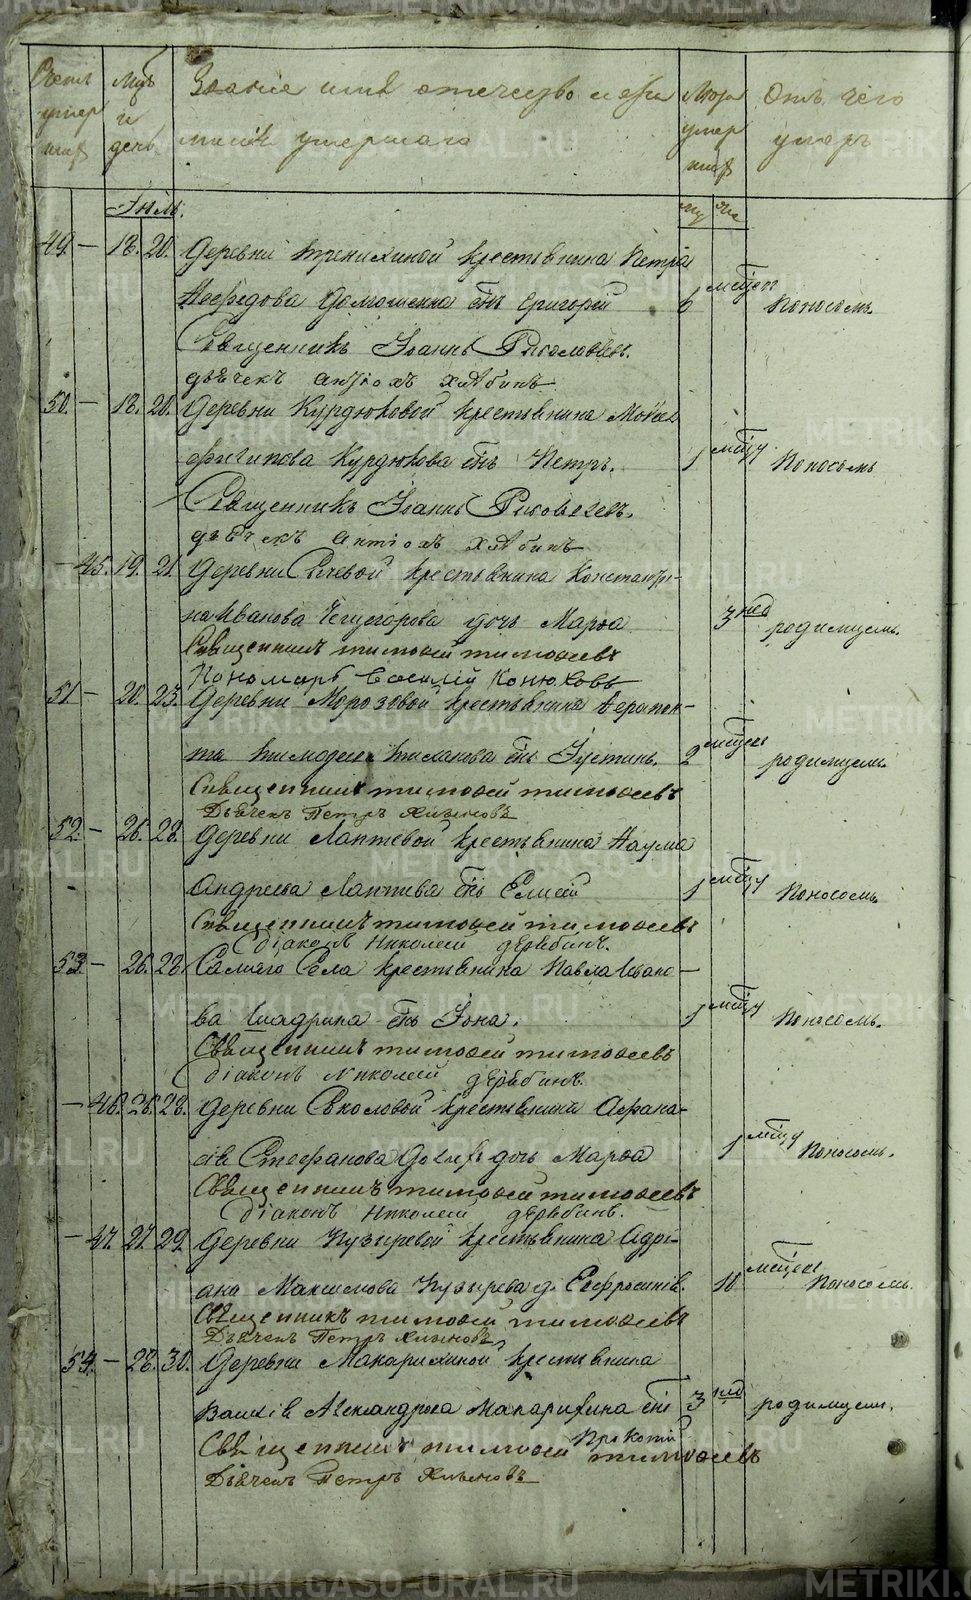 Счетъ умер шихъ
Мцъ и день
Званіе имя отечество и фа милія умершаго
Лѣта умер шихъ
Отъ чего умеръ
Іюль.
му же
49. — 18. 20. Деревни крестьянина Петра
сынъ Григорій 6 мѣсяцъ Поносомъ.
Священникъ Іоаннъ
дьячекъ антіохъ хлябинъ
50. — 18. 20. Деревни Курдюковой крестьянина Моисея
филипова Курдюкова сынъ Петръ. 1 мѣсяцу Поносомъ
Священникъ Іоаннъ
дьячекъ антіохъ хлябинъ
— 45. 19. 21. Деревни крестьянина Константи-
на Иванова дочь Марѳа 3 нед родимцемъ.
Священникъ тимоѳей тимоѳеевъ
Пономарь василій Конюховъ
51 — 20. 23. Деревни Морозовой крестьянина Ферапон-
та сынъ Іустинъ. 2 мѣсяцъ родимцемъ
Священникъ тимоѳей тимоѳеевъ
Дьячекъ Петръ Хлыновъ
52. — 26. 28. Деревни Лаптевой крестьянина Наума
Андреева Лаптева сынъ Елисей 1 мѣсяцу Поносомъ.
Священникъ тимоѳей тимоѳеевъ
діаконъ Николай дерябинъ.
53 — 26. 28. Самаго Села крестьянина Павла Ивано—
ва Шадрина сынъ Іона. 1 мѣсяцу Поносомъ.
Священникъ тимоѳей тимоѳеевъ
діаконъ Николай дерябинъ.
— 46. 26. 28. Деревни Соколовой крестьянина Афана-
сія Стефанова дочь Марѳа 1 мѣсяцу Поносомъ.
Священникъ тимоѳей тимоѳеевъ
діаконъ Николай дерябинъ.
— 47. 27. 29. Деревни Пузыревой крестьянина Адрі-
ана Максимова Пузырева д. Евфросинія. 10 мѣсяцъ Поносомъ.
Священникъ тимоѳей тимоѳеевъ
Дьячекъ Петръ Хлыновъ
54. — 28. 30. Деревни Макарихиной крестьянина
Василія Александрова Макарихина сынъ 3 нед родимцемъ.
Прокопій
Священникъ тимоѳей тимоѳеевъ
Дьячекъ Петръ Хлыновъ
METRIKI.GASO-URAL.RU